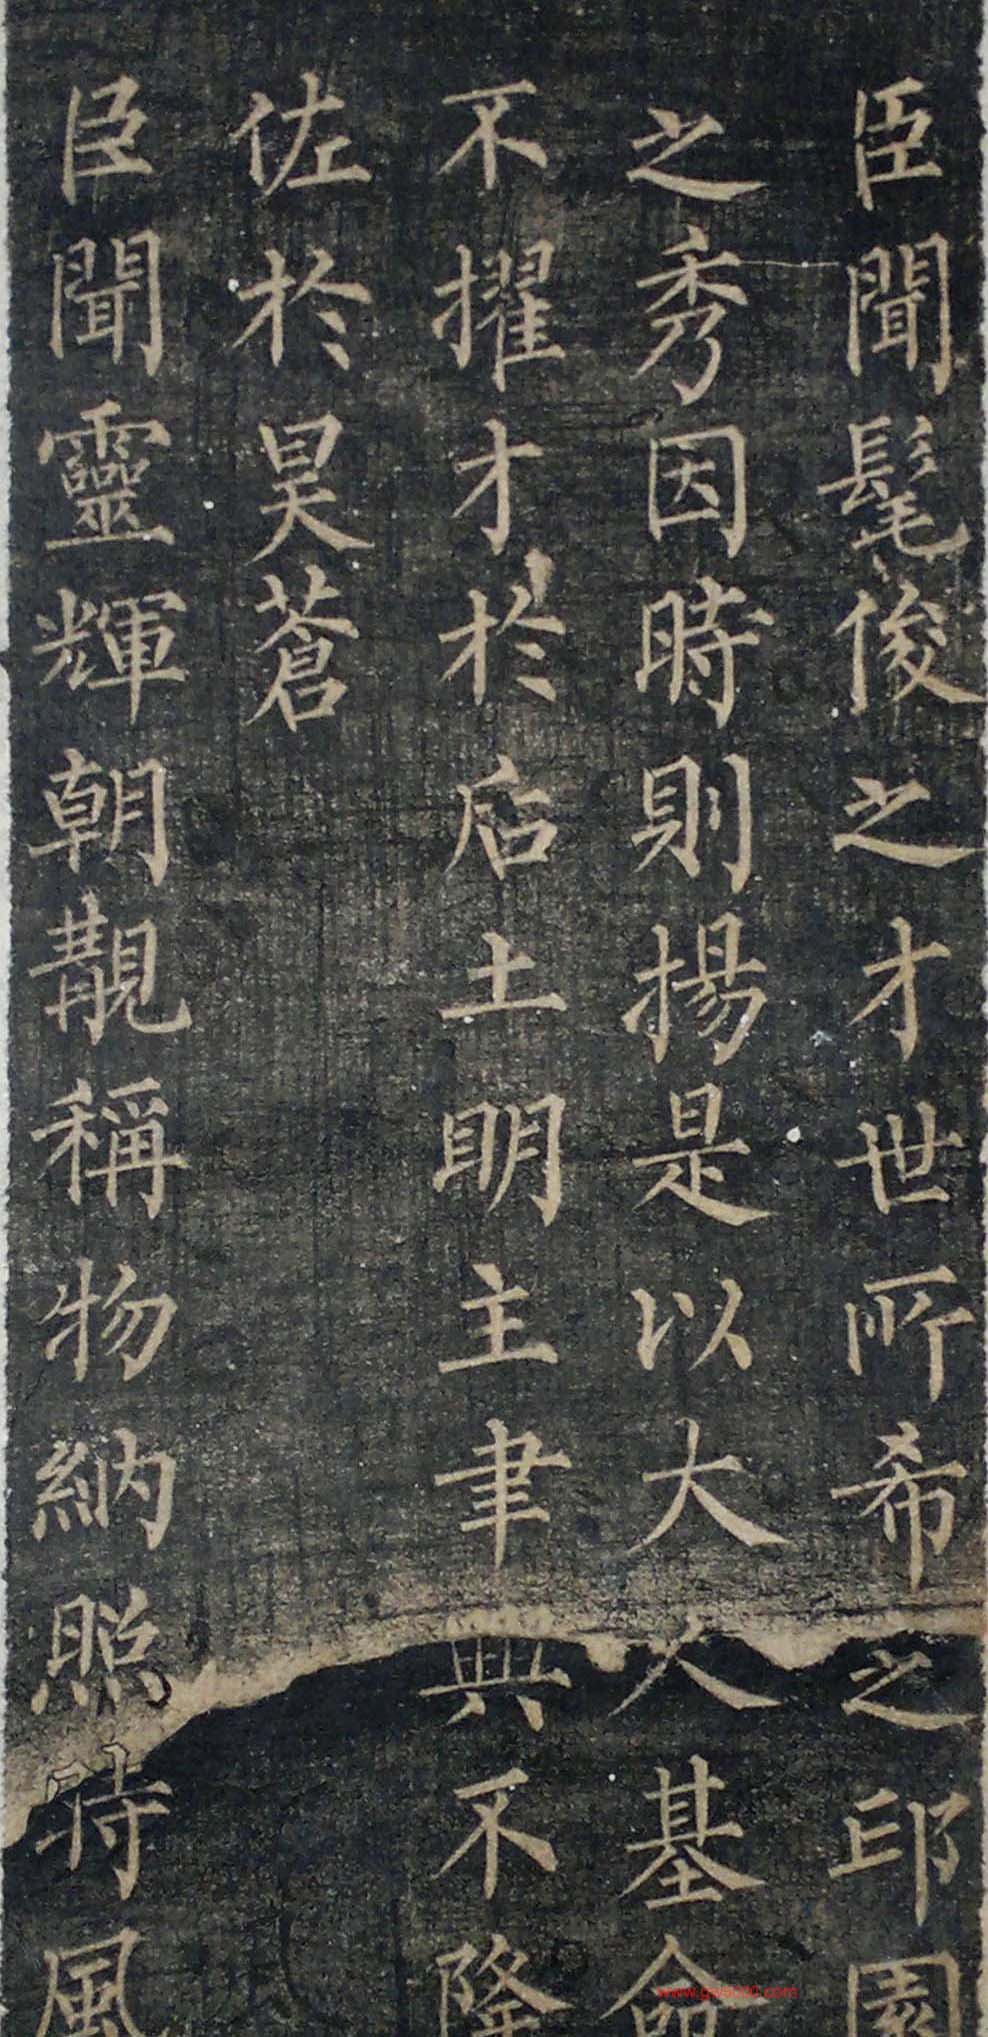 臣聞髦俊之才世所希之邱園
之秀因時則揚是以大人基命
不擢才於后土明主聿興不降
佐於昊蒼
臣聞靈輝朝覯稱物納照時風
www.gss000.com